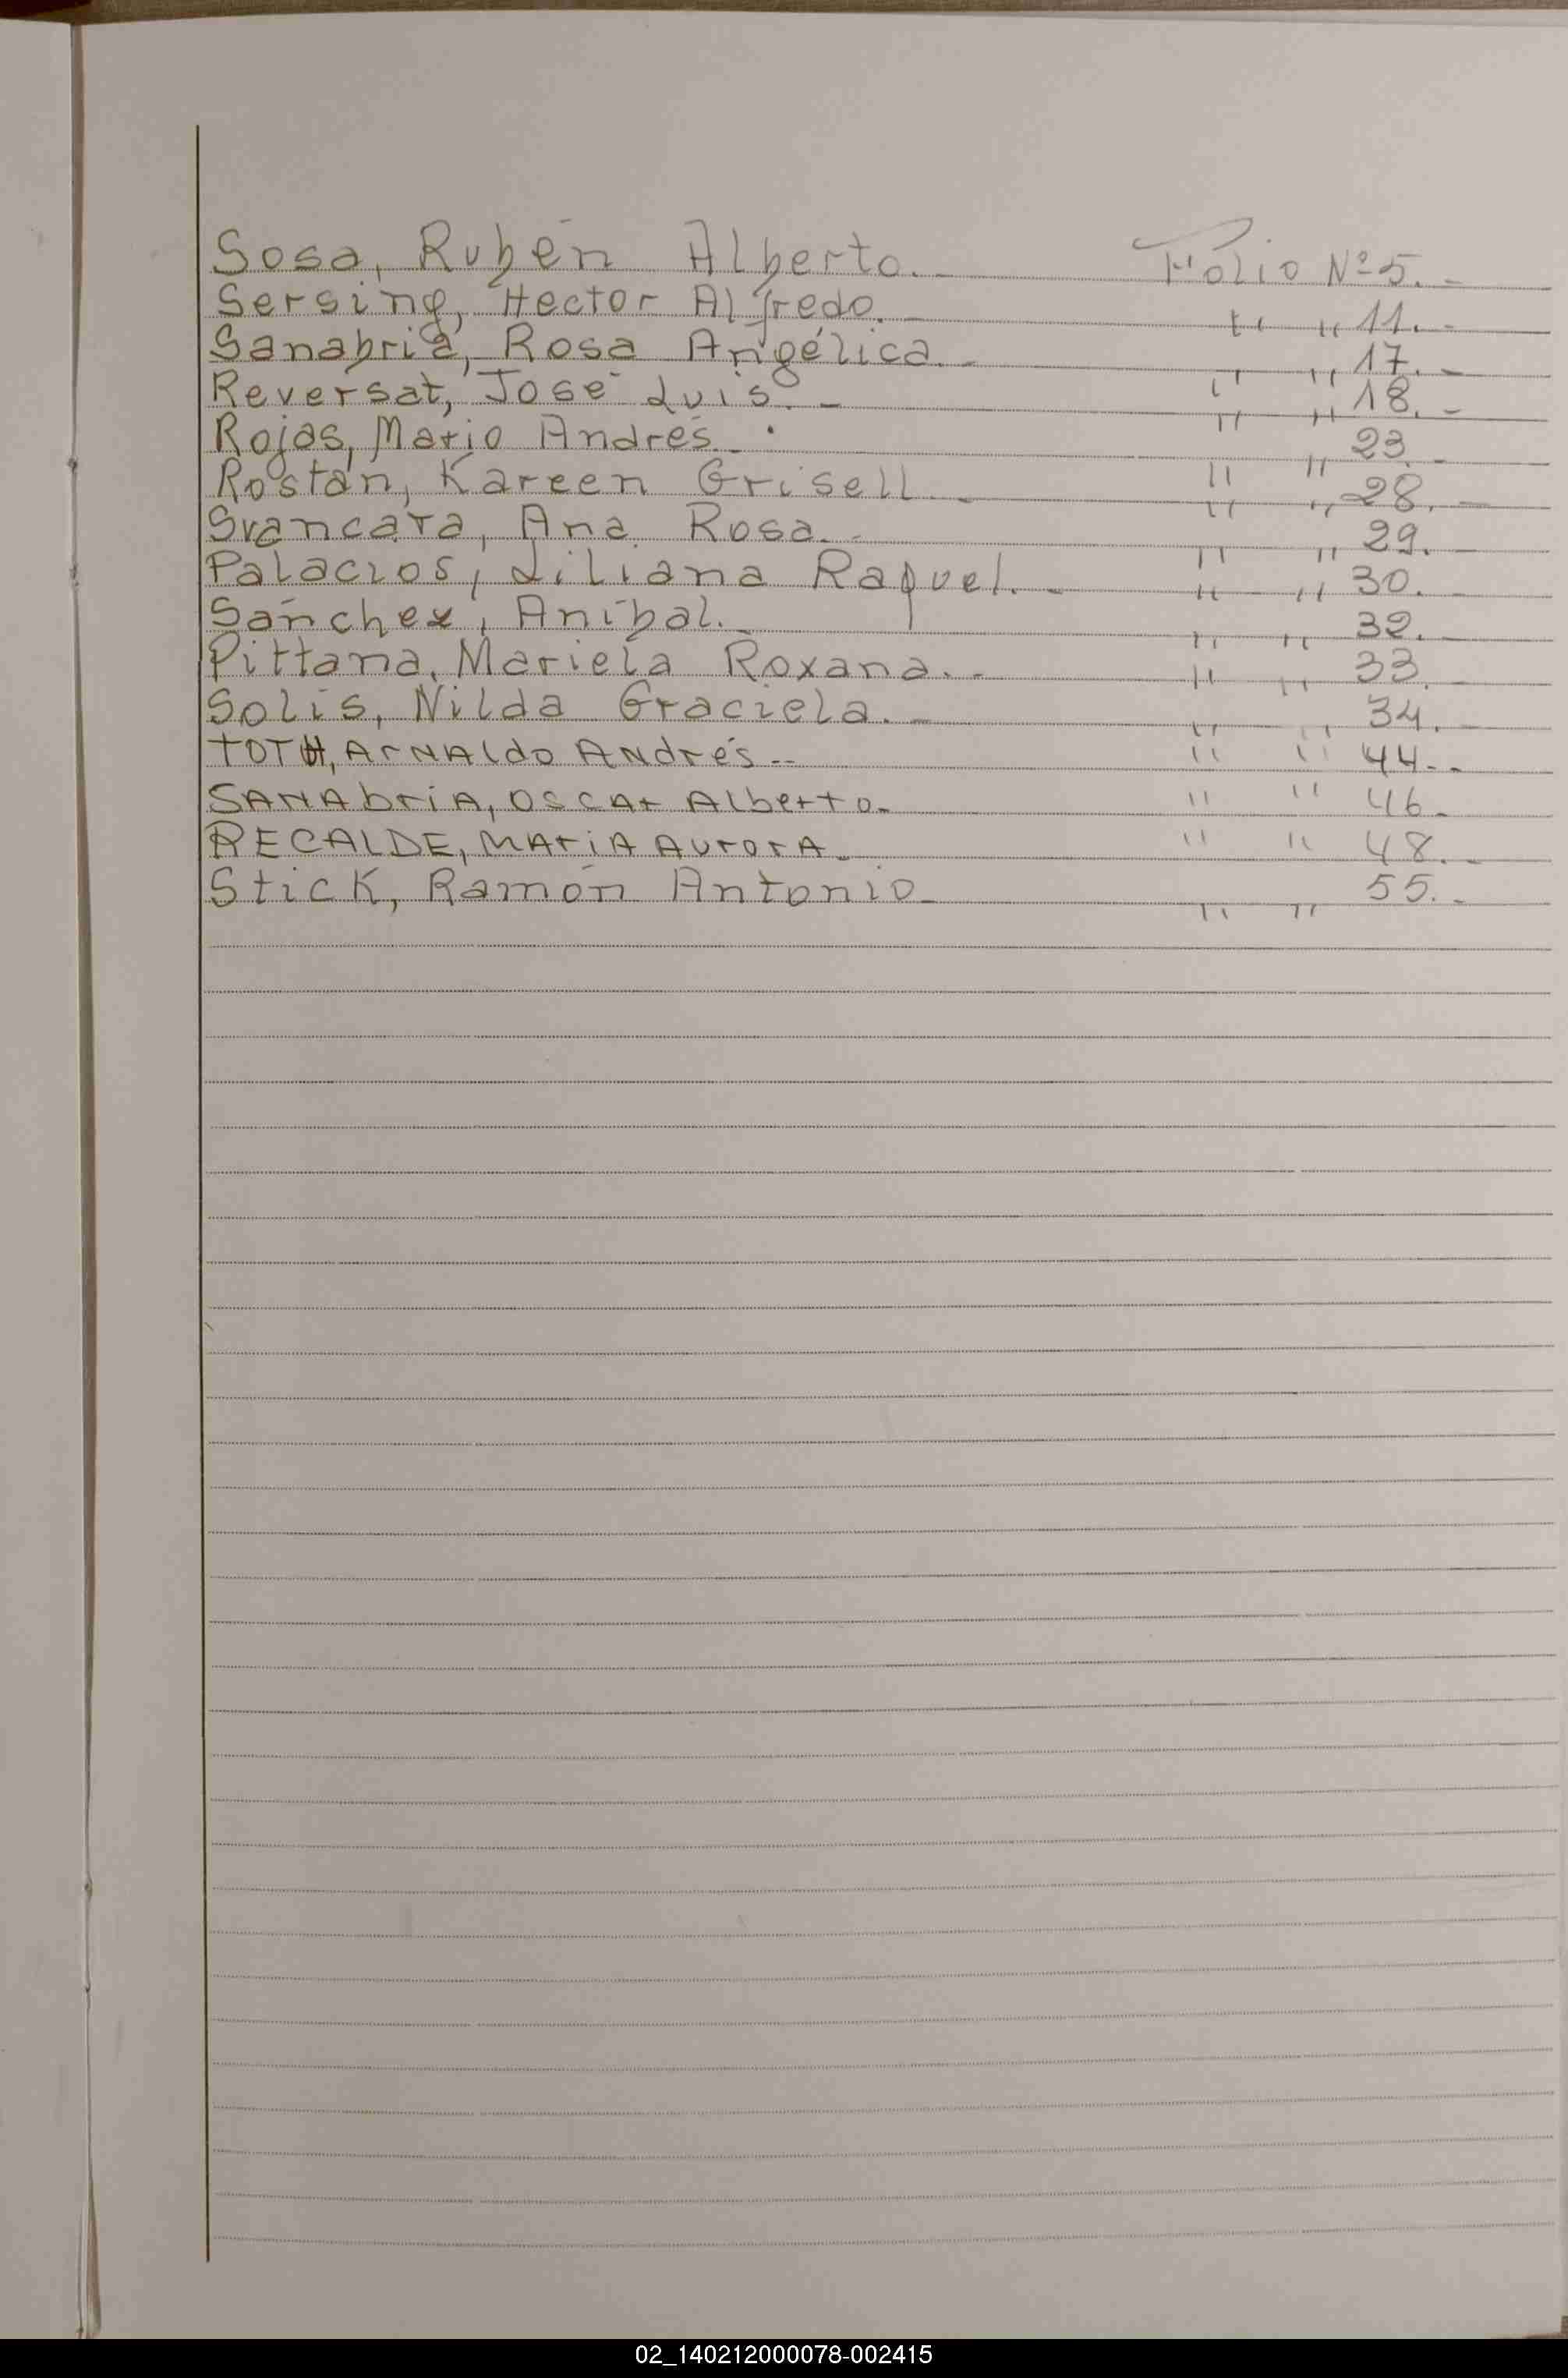 Sosa, Rubén Alberto.- Folio Nº 5.-
Sersing, Hector Alfredo.- " " 11.-
Sanabria, Rosa Angélica.- " " 17.-
Reversat, José Luis.- " " 18.-
Rojas, Mario Andrés.- " " 23.-
Rostán, Kareen Grisell.- " " 28.-
Svancara, Ana Rosa.- " " 29.-
Palacios, Liliana Raquel.- " " 30.-
Sánchez, Aníbal.- " " 32.-
Pittana, Mariela Roxana.- " " 33.-
Solís, Nilda Graciela.- " " 34.-
TOTH, ArNAldo ANdrés.- " " 44.-
SANAbriA, OSCAr Alberto.- " " 46.-
RECALDE, MAriA AurorA.- " " 48.-
Stick, Ramón Antonio.- " " 55.-
02_140212000078-002415